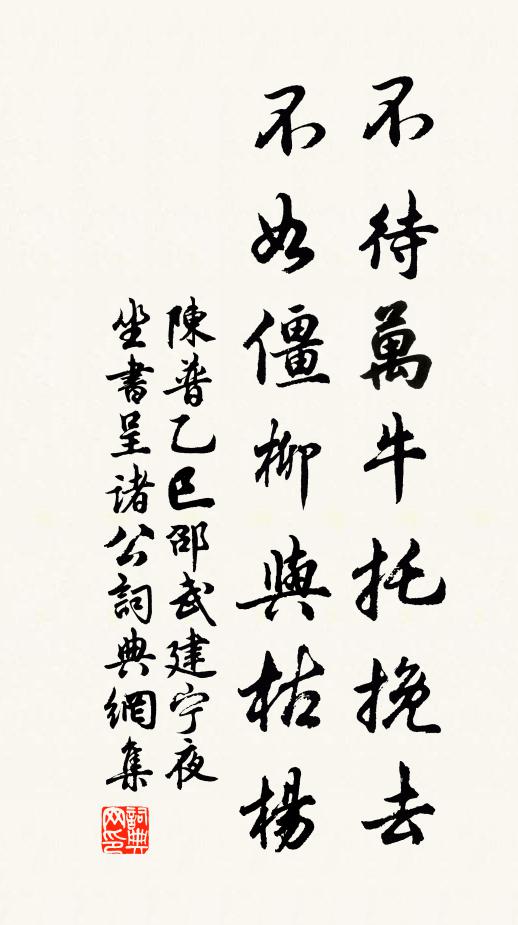 不待萬牛托挽去
不如僵柳與枯楊
陳普乙巳邵武建宁夜
坐書呈诸公詞典網集
詞典
网印